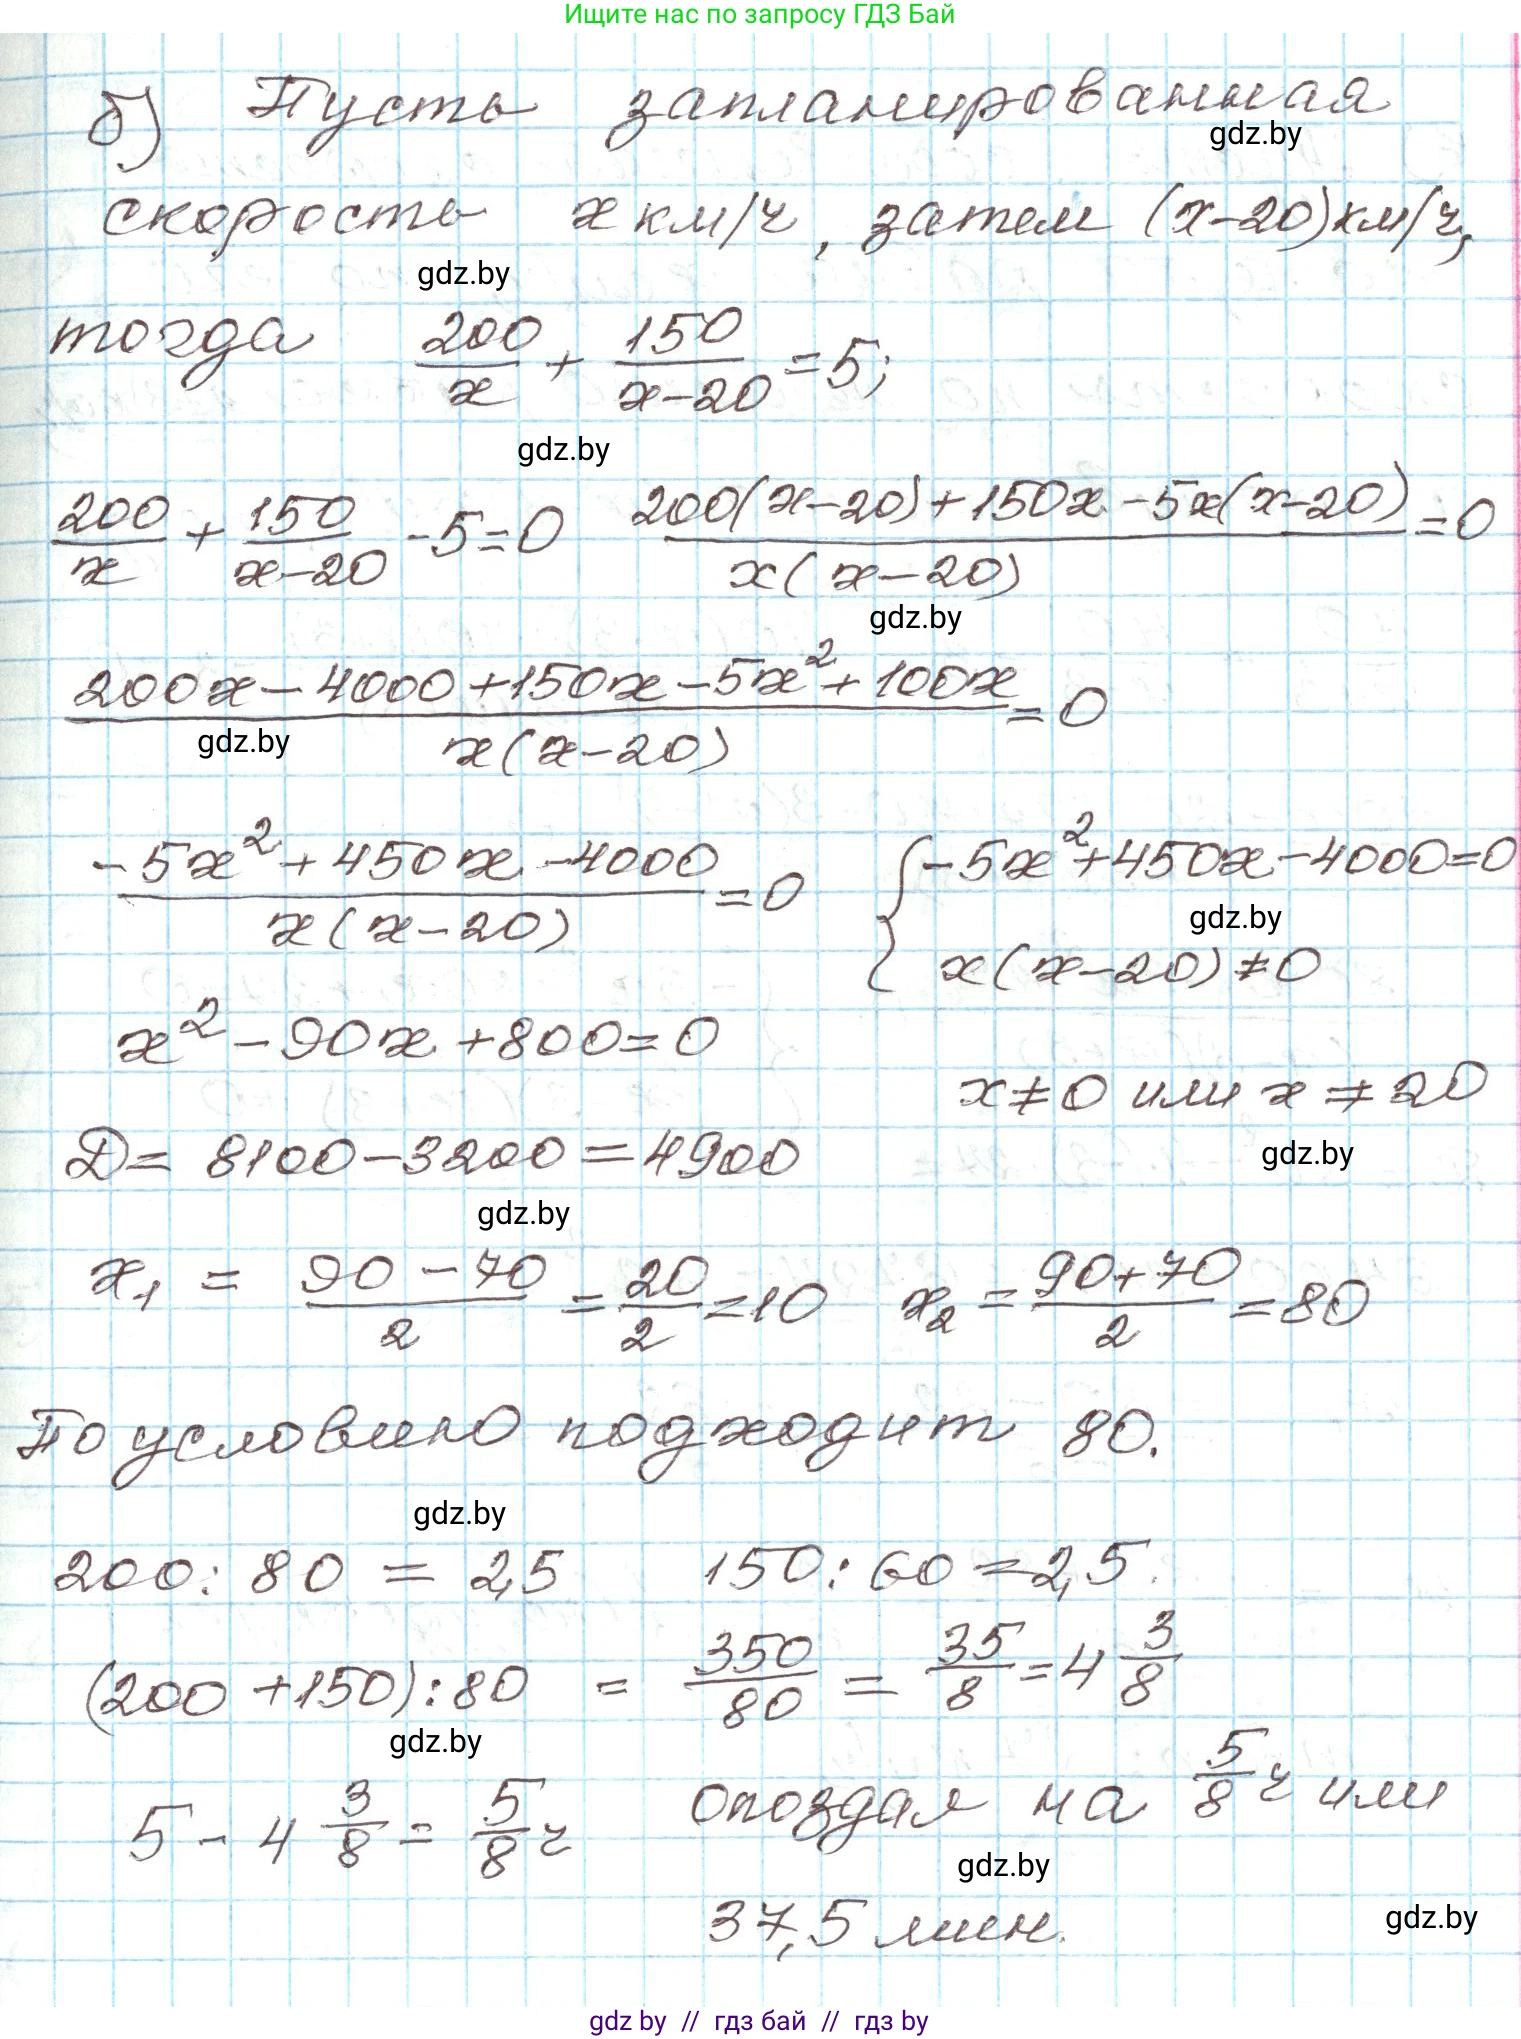 Ищите нас по запросу ГДЗ Бай
б) Пусть запланированная
gdz.by
скорость x км/ч, затем (x-20) км/ч,
gdz.by
тогда 200/x + 150/(x-20) = 5;
gdz.by
200/x + 150/(x-20) - 5 = 0   (200(x-20)+150x-5x(x-20))/(x(x-20)) = 0
gdz.by
(200x-4000+150x-5x²+100x)/(x(x-20)) = 0
gdz.by
(-5x²+450x-4000)/(x(x-20)) = 0   { -5x²+450x-4000=0
gdz.by
x(x-20)≠0
x²-90x+800=0
x≠0 или x≠20
D= 8100-3200=4900
gdz.by
gdz.by
x₁ = (90-70)/2 = 20/2 = 10   x₂ = (90+70)/2 = 80
По условию подходит 80.
gdz.by
200:80 = 2,5   150:60=2,5.
(200+150):80 = 350/80 = 35/8 = 4 3/8
gdz.by
5 - 4 3/8 = 5/8 ч   опоздал на 5/8 ч или
gdz.by
37,5 мин.
gdz.by
gdz by // гдз бай // гдз by